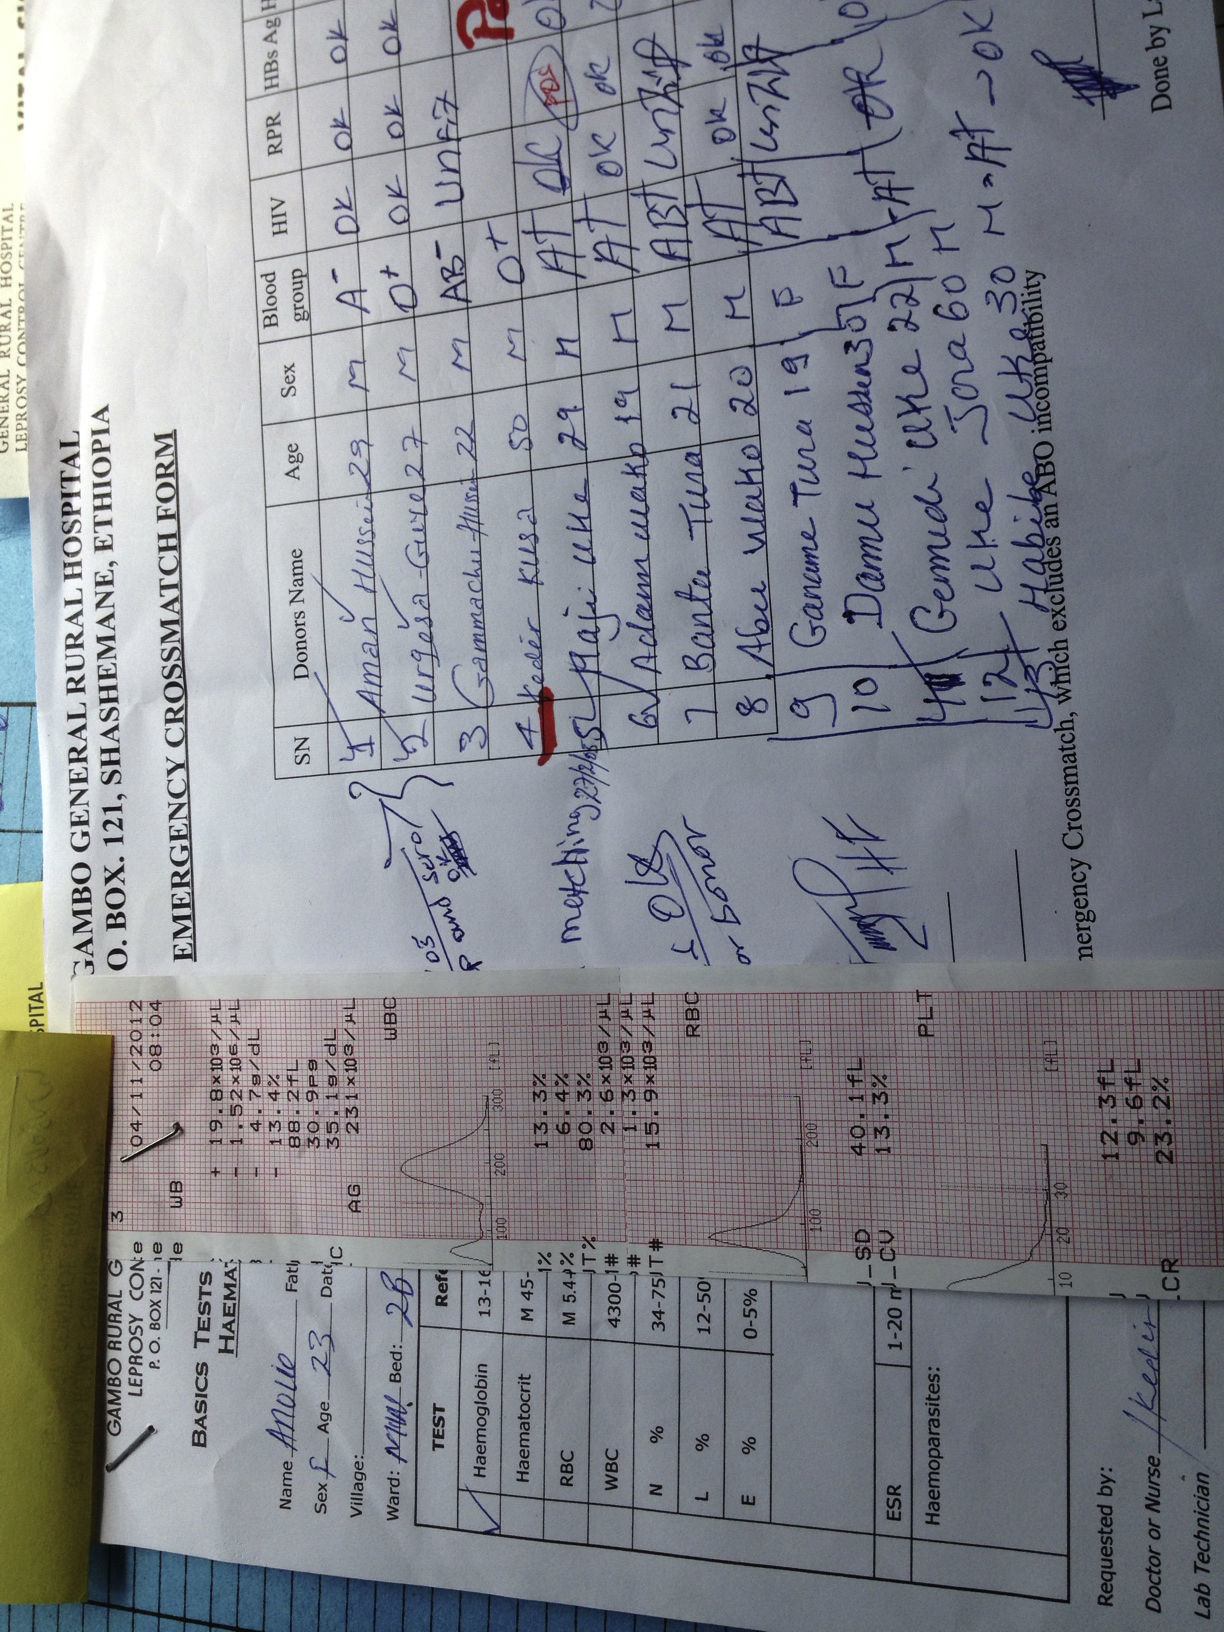 GENERAL RURAL HOSPITAL
GAMBO GENERAL RURAL HOSPITAL
O. BOX. 121, SHASHEMANE, ETHIOPIA
EMERGENCY CROSSMATCH FORM
SN Donors Name Age Sex Blood group HIV RPR HBs Ag H
1 Aman Hussein 29 M A- OK OK OK
2 Urgesa Gure 27 M O+ OK OK OK
3 Gammachu Husen 22 M AB- Unfit
4 Keder Kusa 50 M O+
5 Haji Uke 29 M A+ OK pos
6 Adam Wako 19 M A+ OK OK
7 Bantu Tura 21 M AB+ Unfit
8 Abu Wako 20 M A+ OK OK
9 Gamame Tura 19 F AB+ Unfit
10 Damu Hussen 30 F
Gemedi Uke 22 M A+ OK
12 Uke Jora 60 M
13 Habibe Uke 30 M = A+ → OK
matching
or Donor
mergency Crossmatch, which excludes an ABO incompatibility
Done by L
SPITAL
GAMBO RURAL G
LEPROSY CON
P. O. BOX 121 -
BASICS TESTS
HAEMA
Name Anolie Fath
Sex F Age 23 Date
Village:
Ward: MW Bed: 2B
TEST Refe
Haemoglobin 13-16
Haematocrit M 45-
RBC M 5.4
WBC 4300-
N % 34-75
L % 12-50
E % 0-5%
ESR 1-20 m
Haemoparasites:
Requested by:
Doctor or Nurse Kedir
Lab Technician
3 04/11/2012
08:04
WB
+ 19.8×10³/µL
- 1.52×10⁶/µL
- 4.7g/dL
- 13.4%
88.2fL
30.9pg
35.1g/dL
231×10³/µL
AG
WBC
100 200 300 [fL]
13.3%
6.4%
80.3%
2.6×10³/µL
1.3×10³/µL
15.9×10³/µL
RBC
100 200 [fL]
_SD 40.1fL
_CV 13.3%
PLT
10 20 30 [fL]
12.3fL
9.6fL
_CR 23.2%